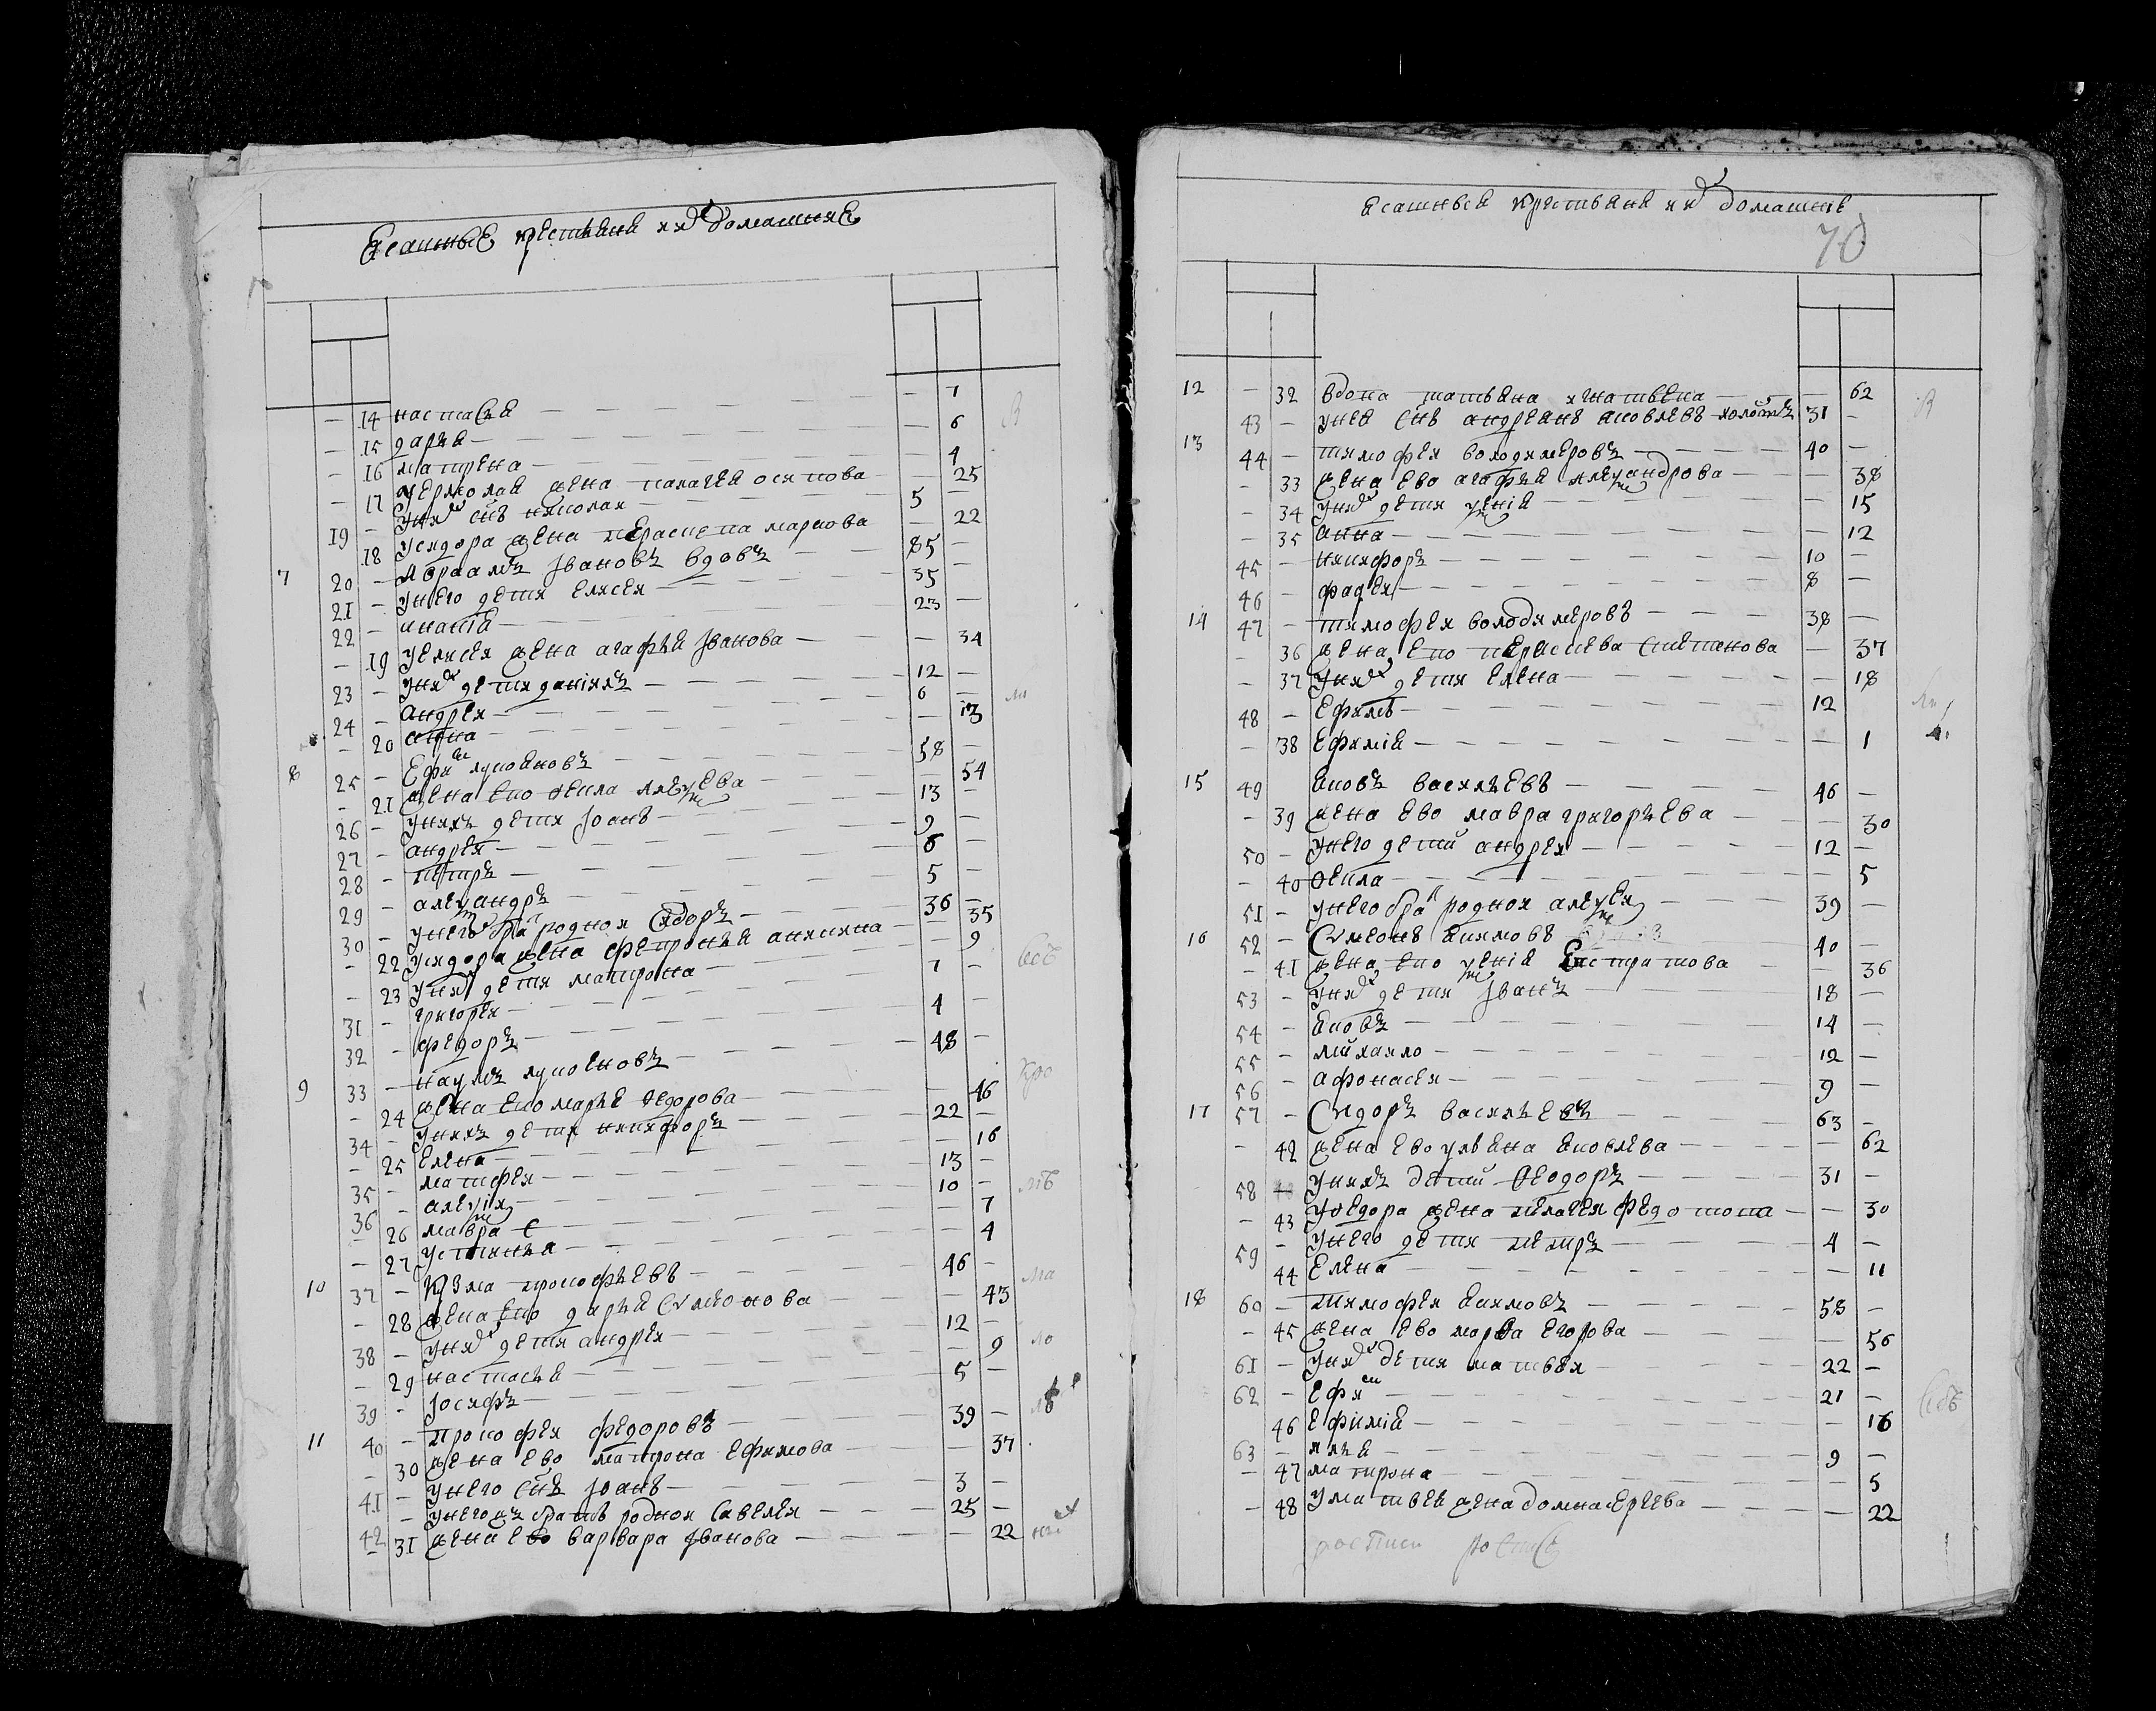 Ясашные крестьяне и их домашние
- 14 настасья - 7
- 15 дарья - 6
- 16 матрена - 4
- 17 у ермолая жена палагея осипова - 25
19 - у них сынъ николаи 5 -
- 18 у сидора жена параскева маркова - 22
7 20 - Авраамъ Ивановъ вдовъ 85 -
21 - у него дети елисеи 35 -
22 - игнатiй 23 -
- 19 у елисея жена агафья Iванова - 34
23 - у них дети данiилъ 12 -
24 - андреи 6 -
- 20 анна - 13
8 25 - Ефим лукояновъ 58 -
- 21 жена ево фекла алексеева - 54
26 - у нихъ дети Iоанъ 13 -
27 - андреи 9 -
28 - петръ 6 -
29 - александръ 5 -
30 - у него брат роднои сидоръ 36 -
- 22 у сидора жена фетронья анисина - 35
- 23 у них дети матрона - 9
31 - григореи 7 -
32 - федоръ 4 -
9 33 - наумъ лукояновъ 48 -
- 24 жена ево марье федорова - 46
34 - у нихъ дети никифоръ 22 -
- 25 елена - 16
35 - матфеи 13 -
36 - алексiи 10 -
- 26 мавра - 7
- 27 устинья - 4
10 37 - кузма прокофьевъ 46 -
- 28 жена ево дарья симеонова - 43
38 - у них дети андреи 12 -
- 29 настасья - 9
39 - Iосифъ 5 -
11 40 - прокофеи федоровъ 39 -
- 30 жена ево матрона ефимова - 37
41 - у него сынъ Iоанъ 3 -
42 - у него жъ братъ роднои савелеи 25 -
31 жена ево варвара Iванова - 22
ясашныя крестьяня и их домашние
70
12 - 32 вдова татьяна игнатьева - 62
43 - у нея сынъ андреянъ яковлевъ холостъ 31 -
13 44 - тимофеи володимеровъ 40 -
- 33 жена ево агафья александрова - 38
- 34 у них дети ксенiя - 15
- 35 анна - 12
45 - никифоръ 10 -
46 - фадеи 8 -
14 47 - тимофеи володимеровъ 38 -
- 36 жена ево параскева степанова - 37
- 37 у них дети елена - 18
48 - ефимъ 12
- 38 ефимiя - 1
15 49 яковъ васильевъ 46 -
- 39 жена ево мавра григорьева - 30
50 - у него дети андреи 12 -
- 40 фекла - 5
51 - у него брат роднои алексеи 39 -
16 52 - Симеонъ якимовъ 40 -
- 41 жена ево ксенiя Евстратова - 36
53 - у них дети Iванъ 18 -
54 - яковъ 14 -
55 - михаило 12 -
56 - афонасеи 9 -
17 57 - Сидоръ васильевъ 63 -
- 42 жена ево ульяна яковлева - 62
58 - у нихъ дети феодоръ 31 -
- 43 у федора жена пелагея федотова - 30
59 - у него дети петръ 4 -
44 елена - 11
18 60 - тимофеи якимовъ 58 -
- 45 жена ево марфа егорова - 56
61 - у них дети матвеи 22 -
62 - ефим 21 -
46 ефимiя - 16
63 - илья 9 -
- 47 матрона - 5
- 48 у матвея жена домна сергеева - 22